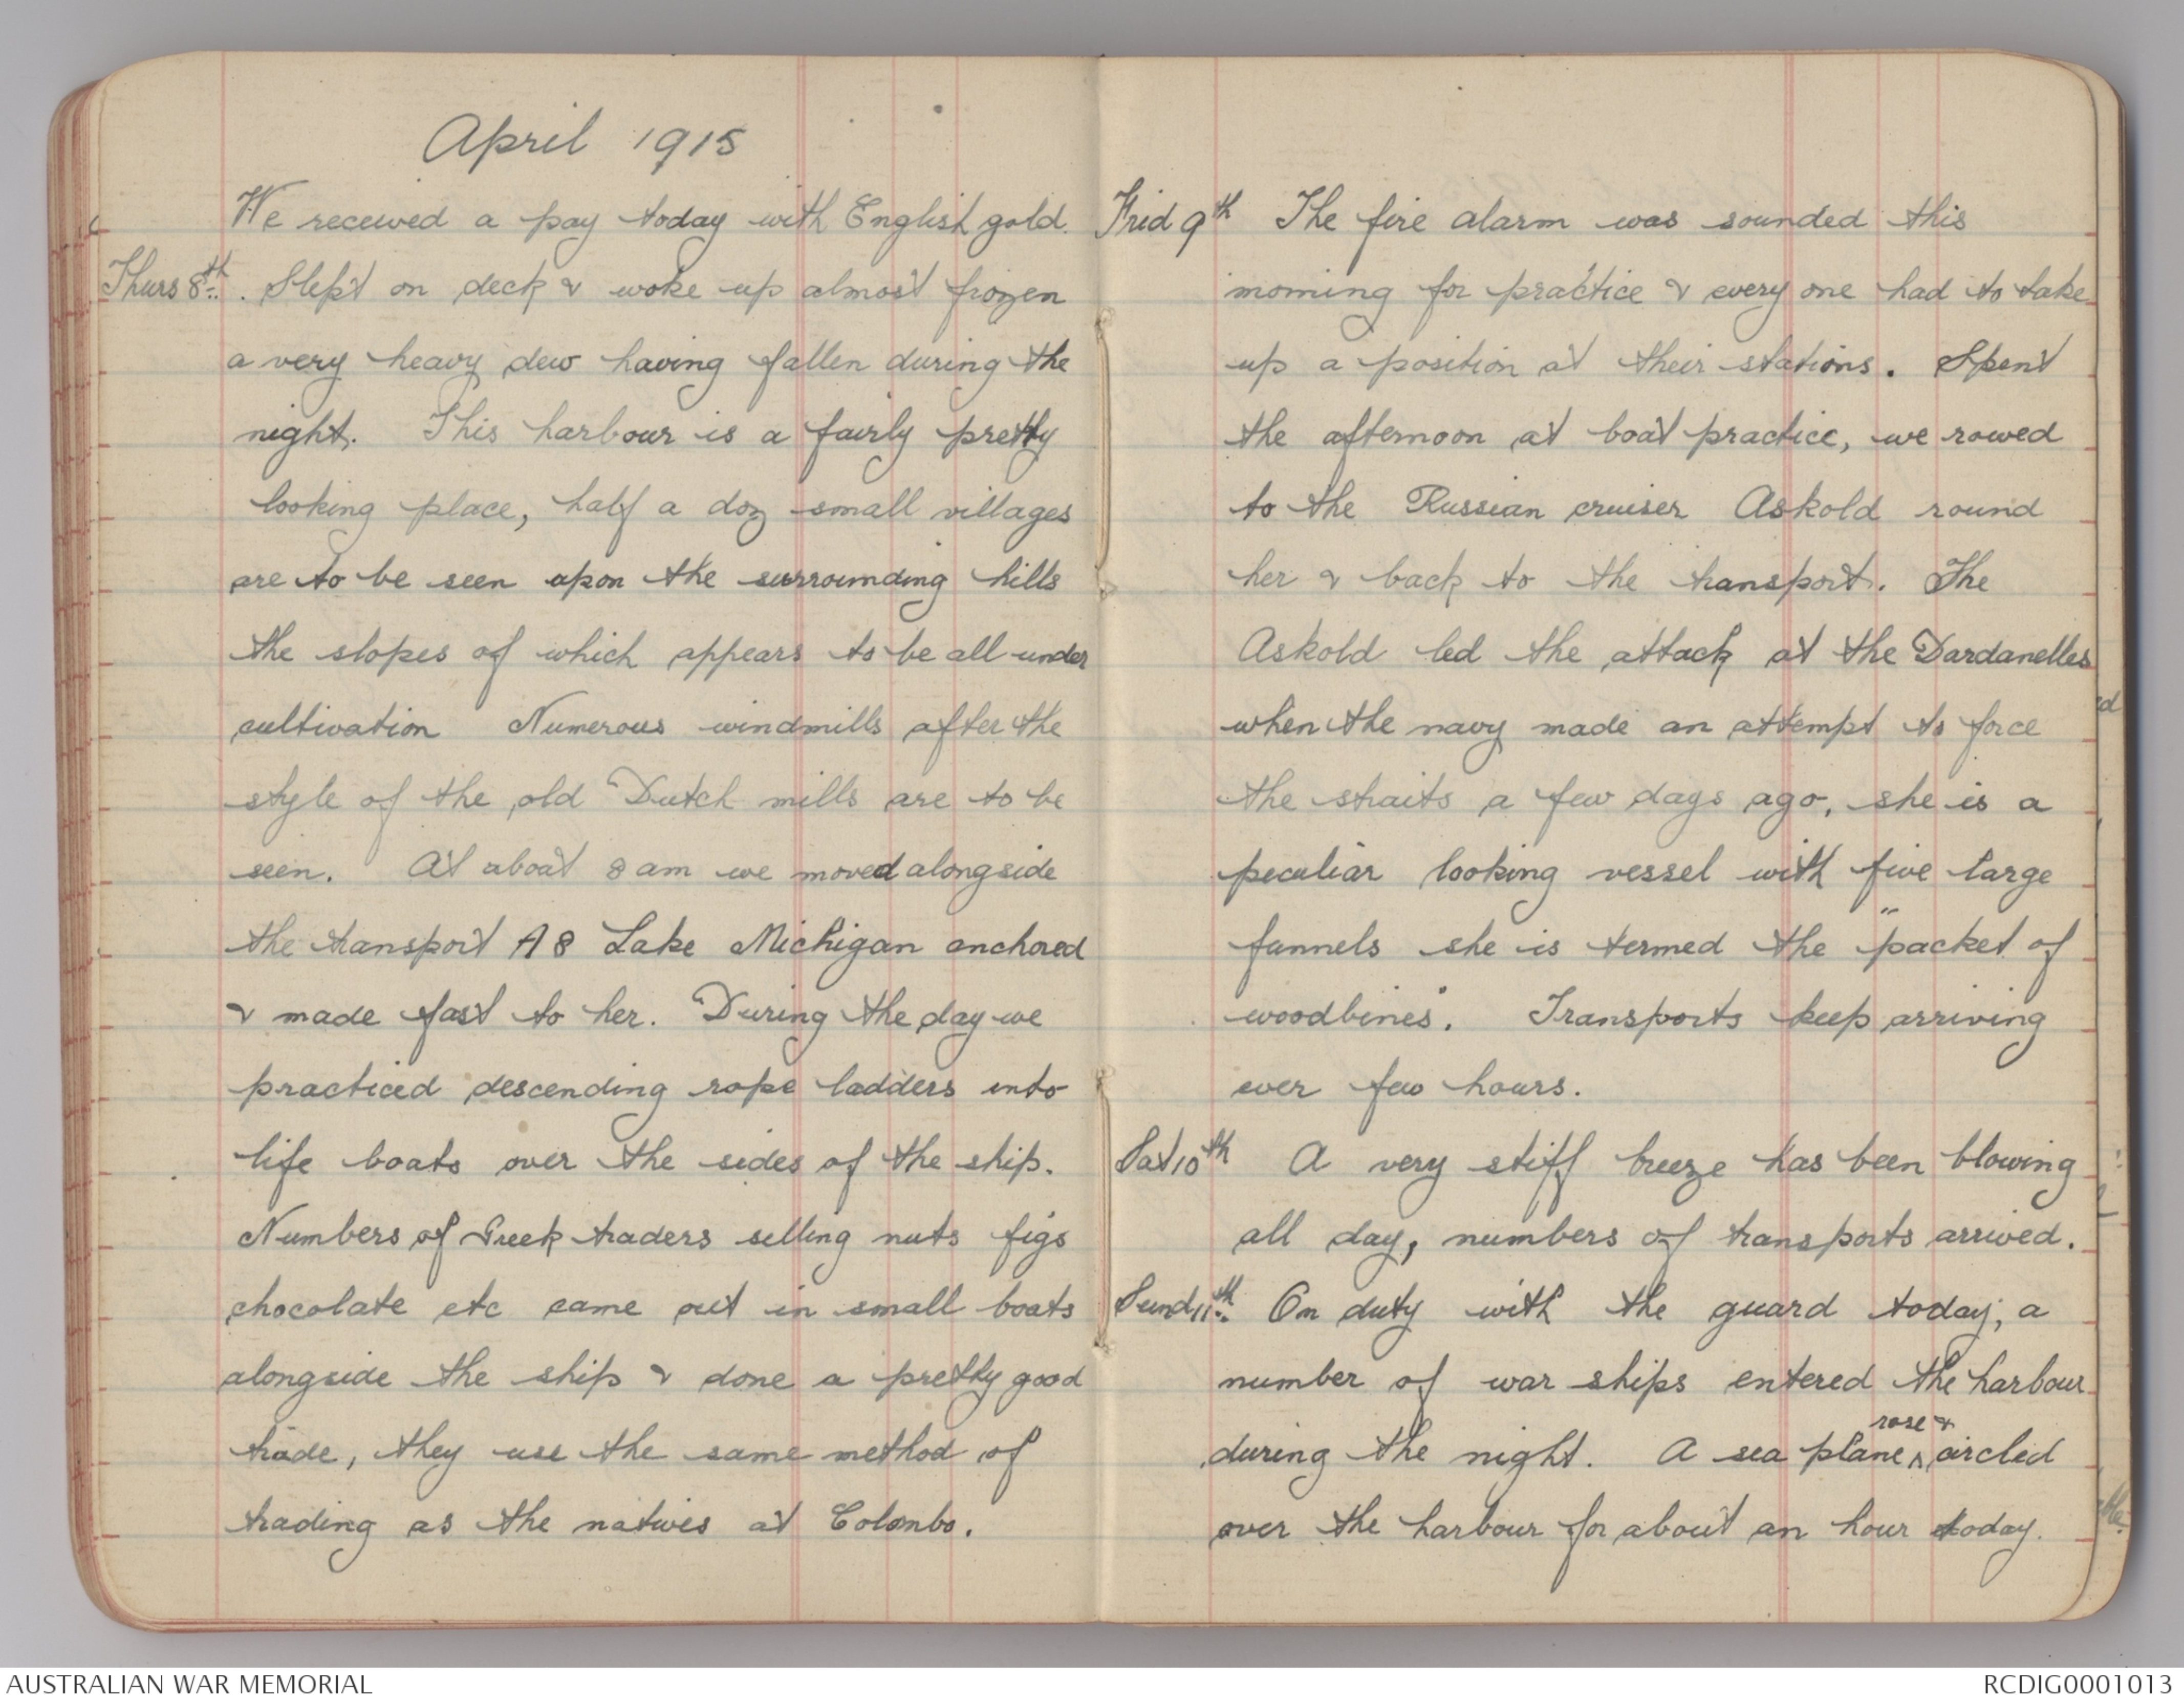 April 1915
We received a pay today with English gold.
Thurs 8th. Slept on deck & woke up almost frozen
a very heavy dew having fallen during the
night. This harbour is a fairly pretty
looking place, half a doz small villages
are to be seen upon the surrounding hills
the slopes of which appears to be all under
cultivation Numerous windmills after the
style of the old Dutch mills are to be
seen. At about 8 am we moved alongside
the transport A8 Lake Michigan anchored
& made fast to her. During the day we
practiced descending rope ladders into
life boats over the sides of the ship.
Numbers of Greek traders selling nuts figs
chocolate etc came out in small boats
alongside the ship & done a pretty good
trade, they use the same method of
trading as the natives at Colombo.
Frid 9th The fire alarm was sounded this
morning for practice & every one had to take
up a position at their stations. Spent
the afternoon at boat practice, we rowed
to the Russian cruiser Askold round
her & back to the transport. The
Askold led the attack at the Dardanelles
when the navy made an attempt to force
the straits a few days ago, she is a
peculiar looking vessel with five large
funnels she is termed the "packet of
woodbines". Transports keep arriving
ever few hours.
Sat 10th A very stiff breeze has been blowing
all day, numbers of transports arrived.
Sund 11th. On duty with the guard today, a
number of war ships entered the harbour
during the night. A sea plane ^rose & circled
over the harbour for about an hour today.
AUSTRALIAN WAR MEMORIAL
RCDIG0001013